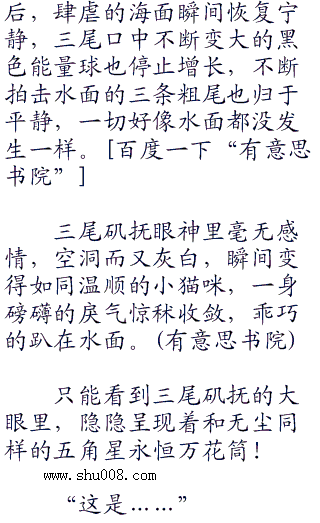 后，肆虐的海面瞬间恢复宁
静，三尾口中不断变大的黑
色能量球也停止增长，不断
拍击水面的三条粗尾也归于
平静，一切好像水面都没发
生一样。[百度一下“有意思
书院”]
三尾矶抚眼神里毫无感
情，空洞而又灰白，瞬间变
得如同温顺的小猫咪，一身
磅礴的戾气惊秫收敛，乖巧
的趴在水面。(有意思书院)
只能看到三尾矶抚的大
眼里，隐隐呈现着和无尘同
样的五角星永恒万花筒！
www.shu008.com
“这是……”